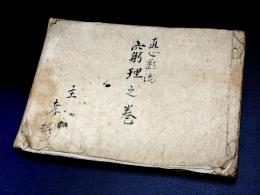 直心影流
窮理之巻
主